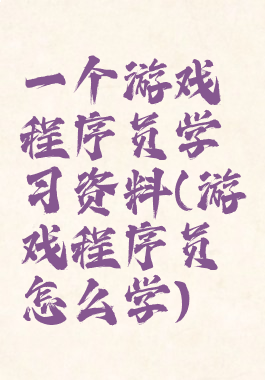 一个游戏
程序员学
习资料(游
戏程序员
怎么学)